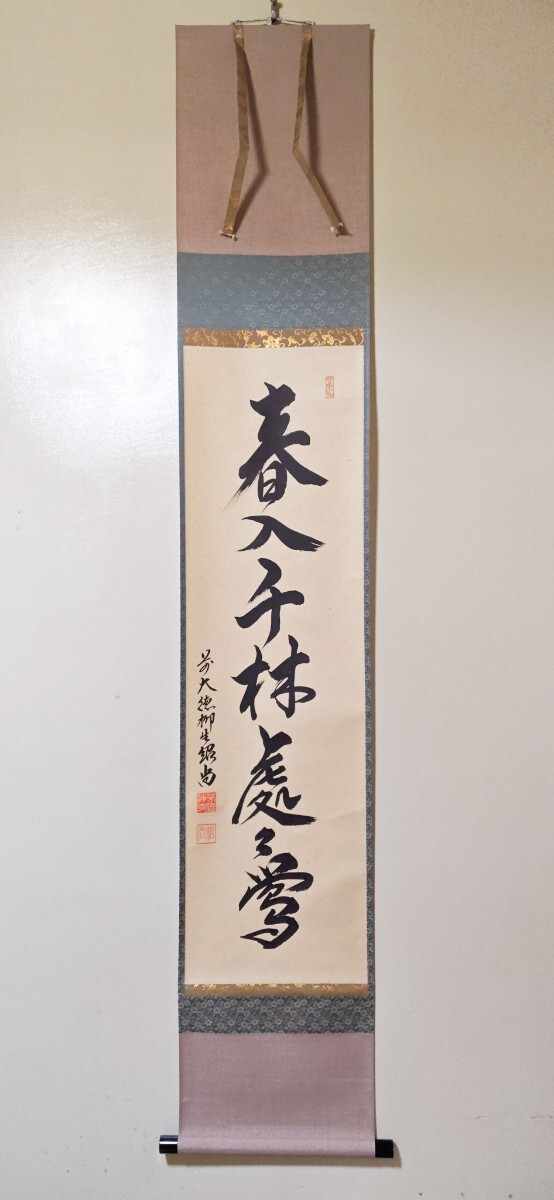 春入千林處々鶯
前大徳柳生紹尚